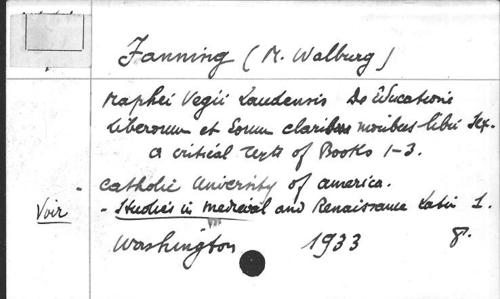 Fanning (M. Walburg)
Maphei Vegii Laudensis De Educatione
liberorum et Eorum claris moribus libri Sex.
a critical Text of Books 1-3.
Catholic University of america.
Voir - Studies in medieval and Renaissance Latin 1.
Washington 1933 8°.